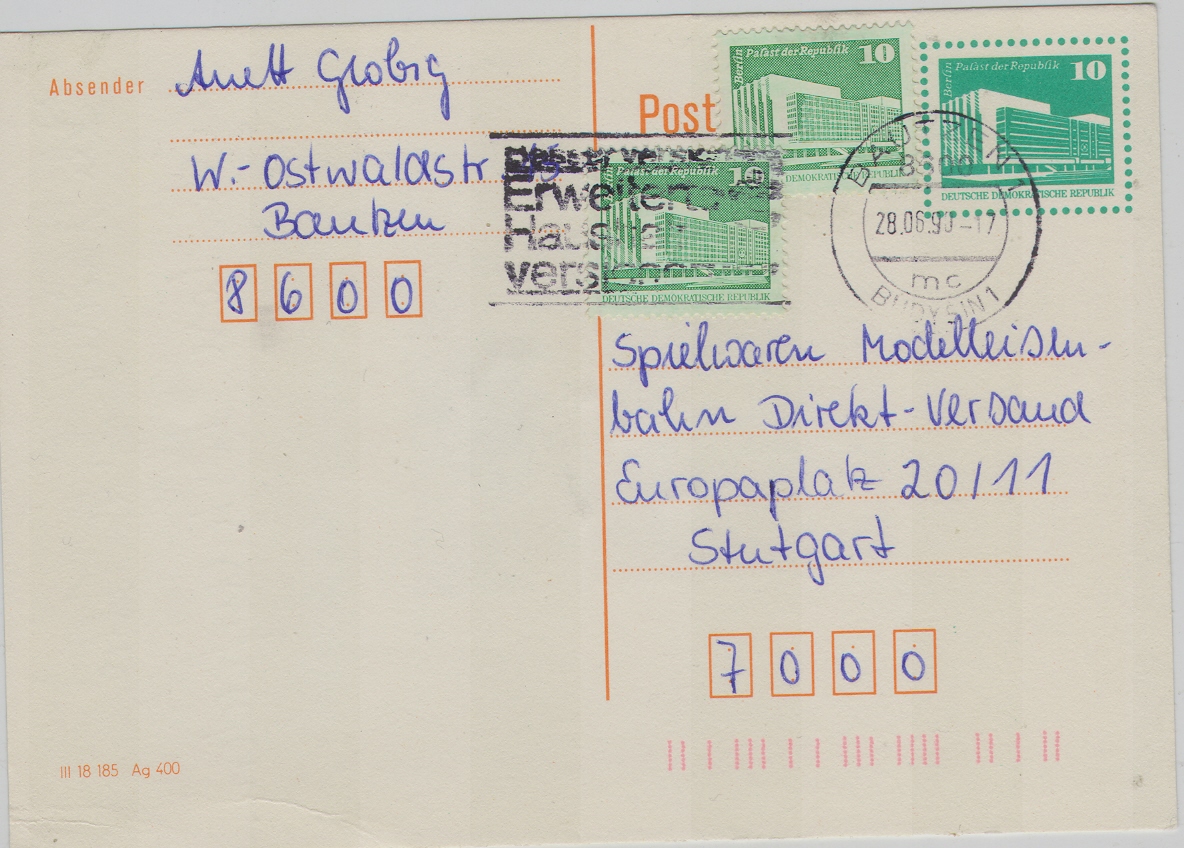 Absender Anett Grobig
W.-Ostwaldstr.
Bautzen
8 6 0 0
Post
Berlin Palast der Republik 10
DEUTSCHE DEMOKRATISCHE REPUBLIK
Berlin Palast der Republik 10
DEUTSCHE DEMOKRATISCHE REPUBLIK
Palast der Republik 10
DEUTSCHE DEMOKRATISCHE REPUBLIK
Erweiterte
Haushalt
BAUTZEN 1
8600
28.06.90-17
mc
BUDYŠIN 1
Spielwaren Modelleisen-
bahn Direkt-Versand
Europaplatz 20/11
Stuttgart
7 0 0 0
III 18 185 Ag 400